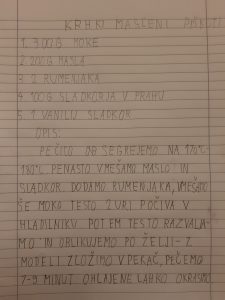 KRHKI MASLENI PIŠKOTI
1. 300G MOKE
2. 200G MASLA
3. 2 RUMENJAKA
4. 100G SLADKORJA V PRAHU
5. 1 VANILIJ SLADKOR
OPIS:
PEČICO OB SEGREJEMO NA 170°C-
180°C PENASTO VMEŠAMO MASLO IN
SLADKOR. DODAMO RUMENJAKA, VMEŠAMO
ŠE MOKO TESTO 2 URI POČIVA V
HLADILNIKU POTEM TESTO RAZVALJA-
MO IN OBLIKUJEMO PO ŽELJI - Z
MODELI ZLOŽIMO V PEKAČ, PEČEMO
7-9 MINUT OHLAJENE LAHKO OKRASIMO